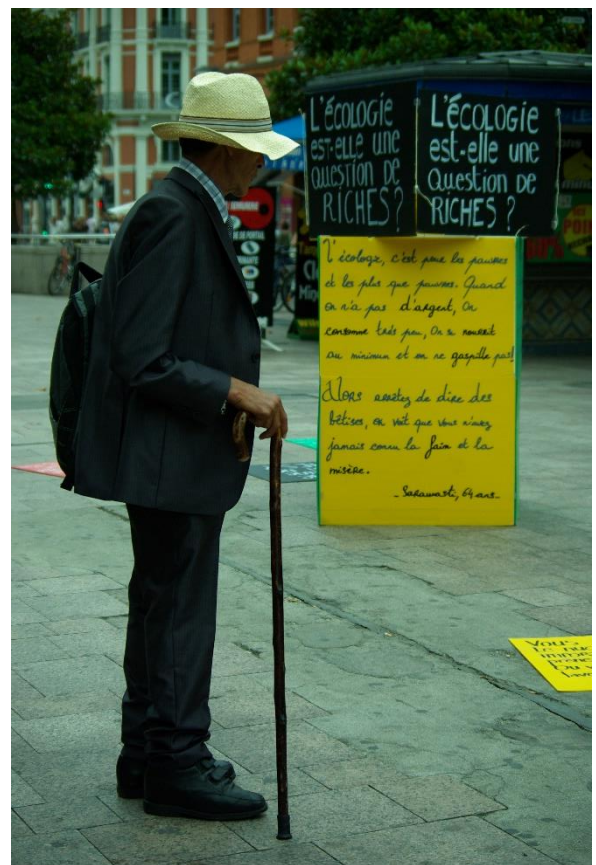 L'ÉCOLOGIE
est-elle une
Question de
RICHES ?
L'ÉCOLOGIE
est-elle une
Question de
RICHES ?
L'écologie, c'est pour les pauvres
et les plus que pauvres. Quand
on n'a pas d'argent, On
consomme très peu, On se nourrit
au minimum et on ne gaspille pas!
Alors arrêtez de dire des
bêtises, on voit que vous n'avez
jamais connu la faim et la
misère.
- Sarawasti, 64 ans -
Vous